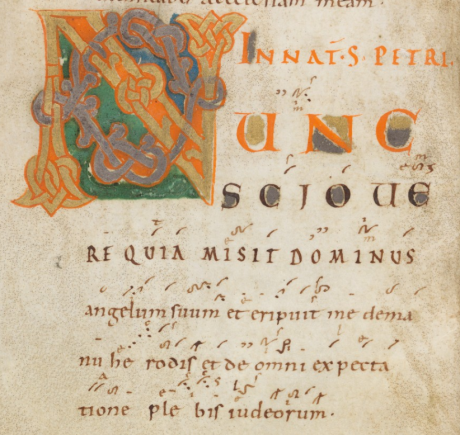 IN NAT· S· PETRI.
NUNC
SCIO UE
RE QUIA MISIT DOMINUS
angelum suum et eripuit me dema
nu he rodis et de omni expecta
tione ple bis iudeorum·